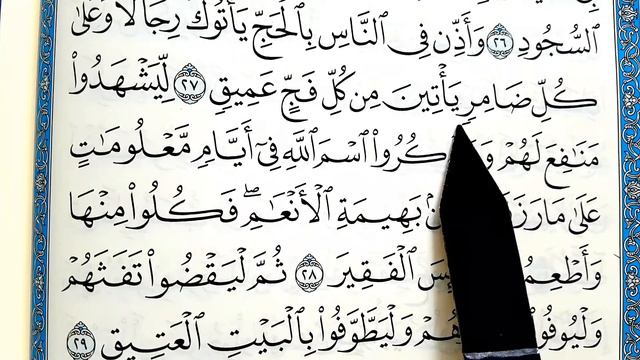 ٱلسُّجُودِ ٢٦ وَأَذِّن فِى ٱلنَّاسِ بِٱلْحَجِّ يَأْتُوكَ رِجَالًا وَعَلَىٰ
كُلِّ ضَامِرٍ يَأْتِينَ مِن كُلِّ فَجٍّ عَمِيقٍ ٢٧ لِّيَشْهَدُوا۟
مَنَـٰفِعَ لَهُمْ ٱسْمَ ٱللَّهِ فِىٓ أَيَّامٍ مَّعْلُومَـٰتٍ
عَلَىٰ مَا بَهِيمَةِ ٱلْأَنْعَـٰمِ ۖ فَكُلُوا۟ مِنْهَا
ٱلْفَقِيرَ ٢٨ ثُمَّ لْيَقْضُوا۟ تَفَثَهُمْ
وَلْيَطَّوَّفُوا۟ بِٱلْبَيْتِ ٱلْعَتِيقِ ٢٩